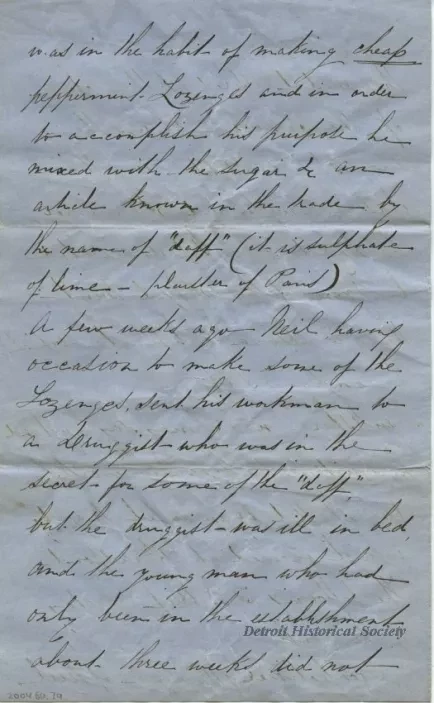 was in the habit of making cheap
peppermint Lozenges and in order
to accomplish his purpose he
mixed with the sugar &c an
article known in the trade by
the name of "daff" (it is sulphate
of lime - plaster of Paris)
A few weeks ago Neil having
occasion to make some of the
Lozenges, sent his workman to
a Druggist who was in the
secret for some of the "daff",
but the druggist was ill in bed,
and the young man who had
only been in the establishment
Detroit Historical Society
about three weeks did not